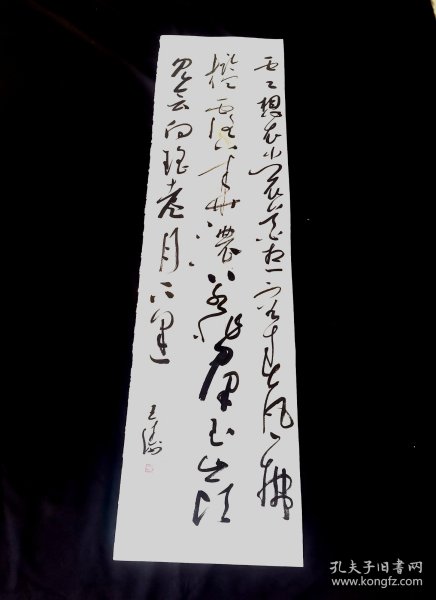 云想衣裳花想容春风拂
槛露华浓若非群玉山头
见会向瑶台月下逢
孔夫子旧书网
www.kongfz.com